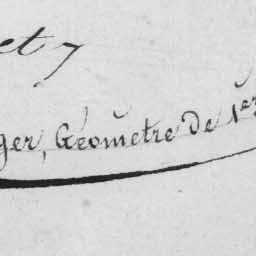 et 7
ger, Géomètre de 1er